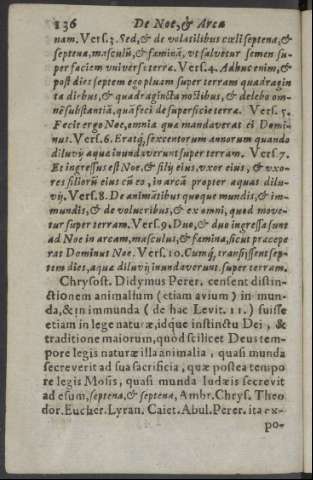 136 De Noe, & Arca
nam. Vers. 3. Sed, & de volatilibus cœli septena, &
septena, masculũ, & fæminã, vt saluetur semen su-
per faciem vniversæ terræ. Vers. 4. Adhuc enim, &
post dies septem ego pluam super terram quadragin
ta diebus, & quadraginta noctibus, & delebo om-
nẽ substantiã, quã feci de superficie terræ. Vers. 5.
Fecit ergo Noe, omnia quæ mandaverat ei Domi-
nus. Vers. 6. Eratq́, sexcentorum annorum quando
diluvij aquæ inundaverunt super terram. Vers. 7.
Et ingressus est Noe, & filij eius, vxor eius, & vxo-
res filiorũ eius cũ eo, in arcã propter aquas dilu-
vij. Vers. 8. De animãtibus quoque mundis, & im-
mundis, & de volucribus, & ex omni, quod move-
tur super terram. Vers. 9. Duo, & duo ingressa sunt
ad Noe in arcam, masculus, & fæmina, sicut præcepe
rat Dominus Noe. Vers. 10. Cumq́, transissent sep-
tem dies, aquæ diluvij inundaverunt super terram.
Chrysost. Didymus Perer. censent distin-
ctionem animalium (etiam avium) in mun-
da, & in immunda (de hac Levit. 11.) fuisse
etiam in lege naturæ, idque instinctu Dei, &
traditione maiorum, quod scilicet Deus tem-
pore legis naturæ illa animalia, quasi munda
secreverit ad sua sacrificia, quæ postea tempo
re legis Mosis, quasi munda Iudæis secrevit
ad esum, septena, & septena, Ambr. Chrys. Theo
dor. Eucher. Lyran. Caiet. Abul. Perer. ita ex-
po-